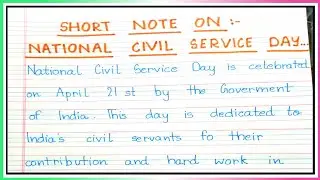 SHORT NOTE ON :-
NATIONAL CIVIL SERVICE DAY...
National Civil Service Day is celebrated
on April 21st by the Goverment
of India. This day is dedicated to
India's civil servants fo their
contribution and hard work in